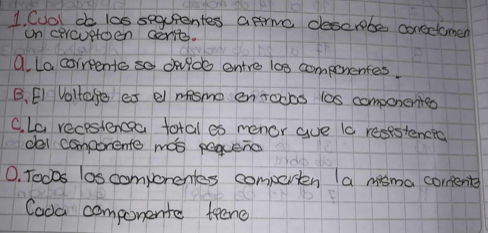 1. Cual de las siguientes afirma describe correctamen
un circuito en cerito.
a. La corriente se divide entre los componentes.
B. El Voltaje es el mismo en todos los componentes
C. La recistencia total es menor que la resistencia
del componente más pequeño
D. Todos los componentes comparten la misma corriente
Cada componente tiene